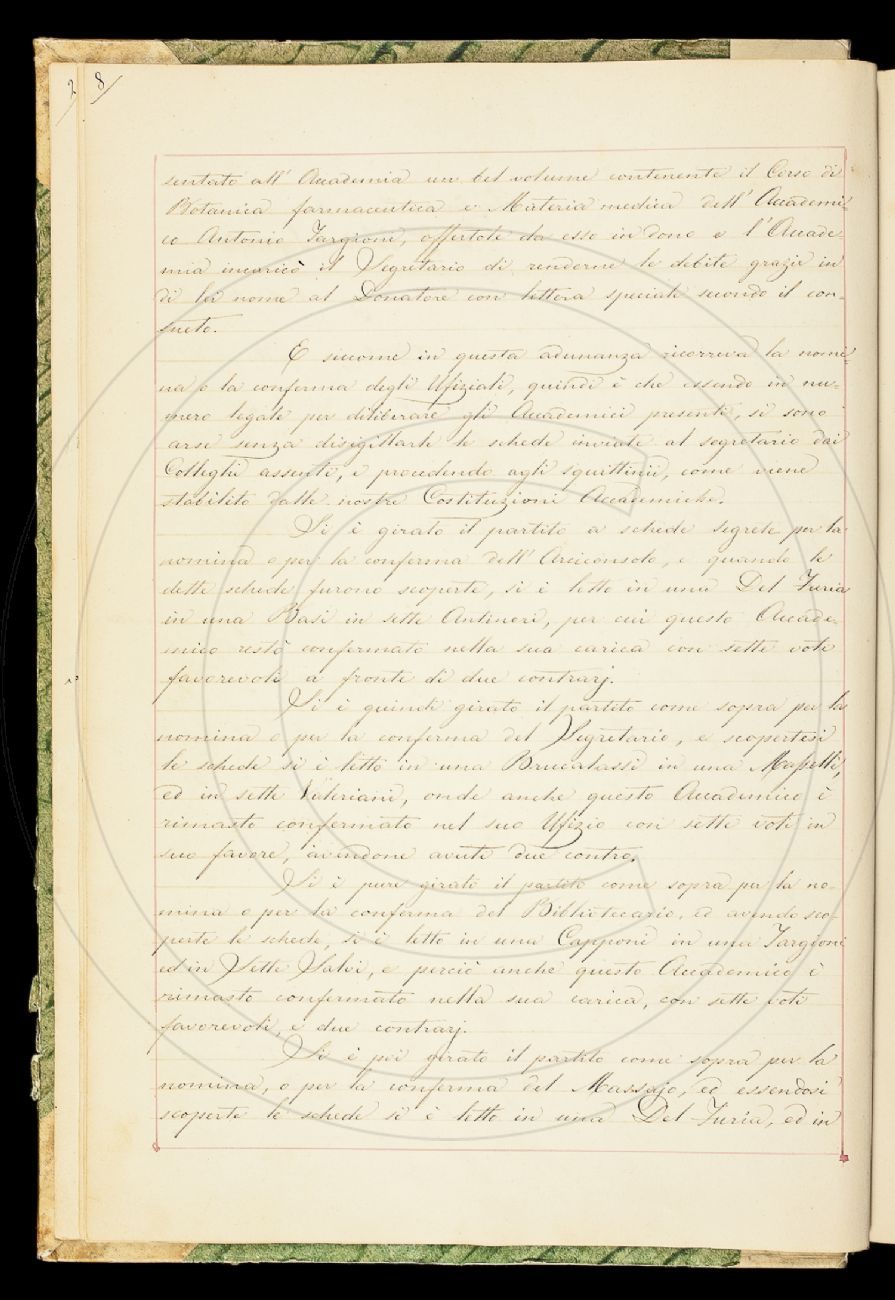 28
sentato all' Accademia un bel volume contenente il Corso di
Botanica farmaceutica e Materia medica dell' Accademi=
co Antonio Targioni, offertole da esso in dono e l'Accade=
mia incaricò il Segretario di renderne le debite grazie in
di lei nome al Donatore con lettera speciale secondo il con=
sueto.
E siccome in questa adunanza ricorreva la nomi=
na o la conferma degli Ufiziali, quindi è che essendo in nu=
mero legale per deliberare gli Accademici presenti, si sono
arse senza disigillarle le schede inviate al segretario dai
Colleghi assenti, e procedendo agli squittinii, come viene
stabilito dalle nostre Costituzioni Accademiche.
Si è girato il partito a schede segrete per la
nomina o per la conferma dell' Arciconsolo, e quando le
dette schede furono scoperte, si è letto in una Del Furia
in una Basi in sette Antinori, per cui questo Accade=
mico restò confermato nella sua carica con sette voti
favorevoli a fronte di due contrarj.
Si è quindi girato il partito come sopra per la
nomina o per la conferma del Segretario, e scopertesi
le schede si è letto in una Brucalassi in una Maselli,
ed in sette Valeriani, onde anche questo Accademico è
rimasto confermato nel suo Ufizio con sette voti in
suo favore, avendone avuti due contro.
Si è pure girato il partito come sopra per la no=
mina o per la conferma del Bibliotecario, ed avendo sco=
perte le schede, si è letto in una Capponi in una Targioni
ed in Sette Salvi, e perciò anche questo Accademico è
rimasto confermato nella sua carica, con sette voti
favorevoli, e due contrarj.
Si è poi girato il partito come sopra per la
nomina, o per la conferma del Massajo, ed essendosi
scoperte le schede si è letto in una Del Furia, ed in